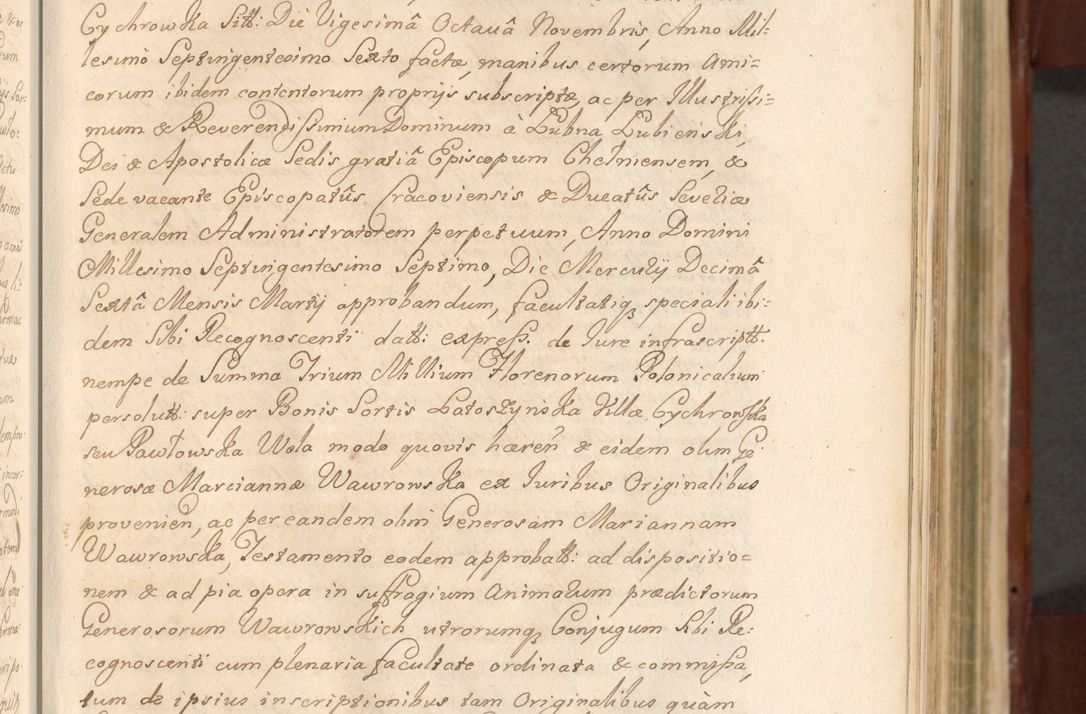 Cychrowka Sitt: Die Vigesimâ Octavâ Novembris, Anno Mil-
lesimo Septingentesimo Sexto factæ, manibus certorum Ami-
corum ibidem contentorum proprijs subscriptæ, ac per Illustrissi-
mum & Reverendissimium Dominum à Lubna Lubienski,
Dei & Apostolicæ Sedis gratiâ Episcopum Chelmensem, &
Sede vacante Episcopatûs Cracoviensis & Ducatûs Severiæ
Generalem Administratorem perpetuum, Anno Domini
Millesimo Septingentesimo Septimo, Die Mercurÿ Decimâ
Sextâ Mensis Martÿ approbandum, facultatiq; speciali ibi-
dem Sibi Recognoscenti datt: express. de Jure infrascriptt.
nempe de Summa Trium Millium Florenorum Polonicalium
persolutt: super Bonis Sortis Latoszynska Villæ Cychrowska
seu Pawłowska Wola modo quovis hæren̄ & eidem olim Ge-
nerosæ Mariannæ Wawrowska ex Juribus Originalibus
provenien̄, ac per eandem olim Generosam Mariannam
Wawrowska, Testamento eodem approbatt: ad dispositio-
nem & ad pia opera in suffragium Animarum prædictorum
Generosorum Wawrowskich utrorumq; Conjugum Sibi Re-
cognoscenti cum plenaria facultate ordinata & commissa,
tum de ipsius inscriptionibus tam Originalibus quàm